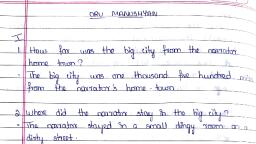 ORU MANUSHYAN
I
1. How far was the big city from the narrator
home town?
- The big city was one thousand five hundred miles
from the narrator's home town.
2. Where did the narrator stay in the big city?
- The narrator stayed in a small dingy room on a
dirty street.